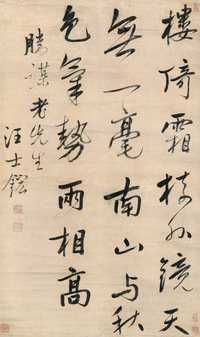 樓倚霜樹外鏡天
無一毫南山與秋
色氣勢兩相高
老先生
汪士鋐